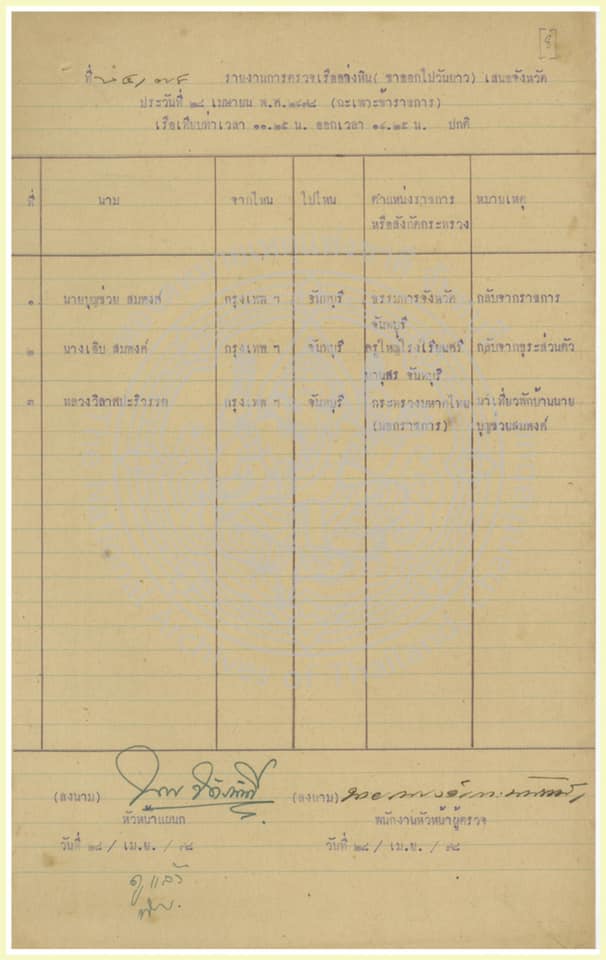 [8]
ที่ ๒๔/๗๘ รายงานการตรวจเรืออ่างหิน( ขาออกไปวันยาว) เสนอจังหวัด
ประวันที่ ๒๘ เมษายน พ.ศ.๒๔๗๘ (ฉะเพาะข้าราชการ)
เรือเทียบท่าเวลา ๑๐.๒๕ น. ออกเวลา ๑๔.๒๕ น. ปกติ
ที่ นาม จากไหน ไปไหน ตำแหน่งราชการหรือสังกัดกระทรวง หมายเหตุ
๑ นายบุญช่วย สมพงค์ กรุงเทพ ฯ จันทบุรี ธรรมการจังหวัดจันทบุรี กลับจากราชการ
๒ นางเจิบ สมพงค์ กรุงเทพ ฯ จันทบุรี ครูใหญ่โรงเรียนศรียานุสร จันทบุรี กลับจากธุระส่วนตัว
๓ หลวงวิลาสปะริวรรต กรุงเทพ ฯ จันทบุรี กระทรวงมหาดไทย (นอกราชการ) มาเที่ยวพักบ้านนายบุญช่วยสมพงค์
(ลงนาม) (ลงนาม)
หัวหน้าแผนก พนักงานหัวหน้าผู้ตรวจ
วันที่ ๒๘ / เม.ย. / ๗๘ วันที่ ๒๘ / เม.ย. / ๗๘
ดูแล้ว